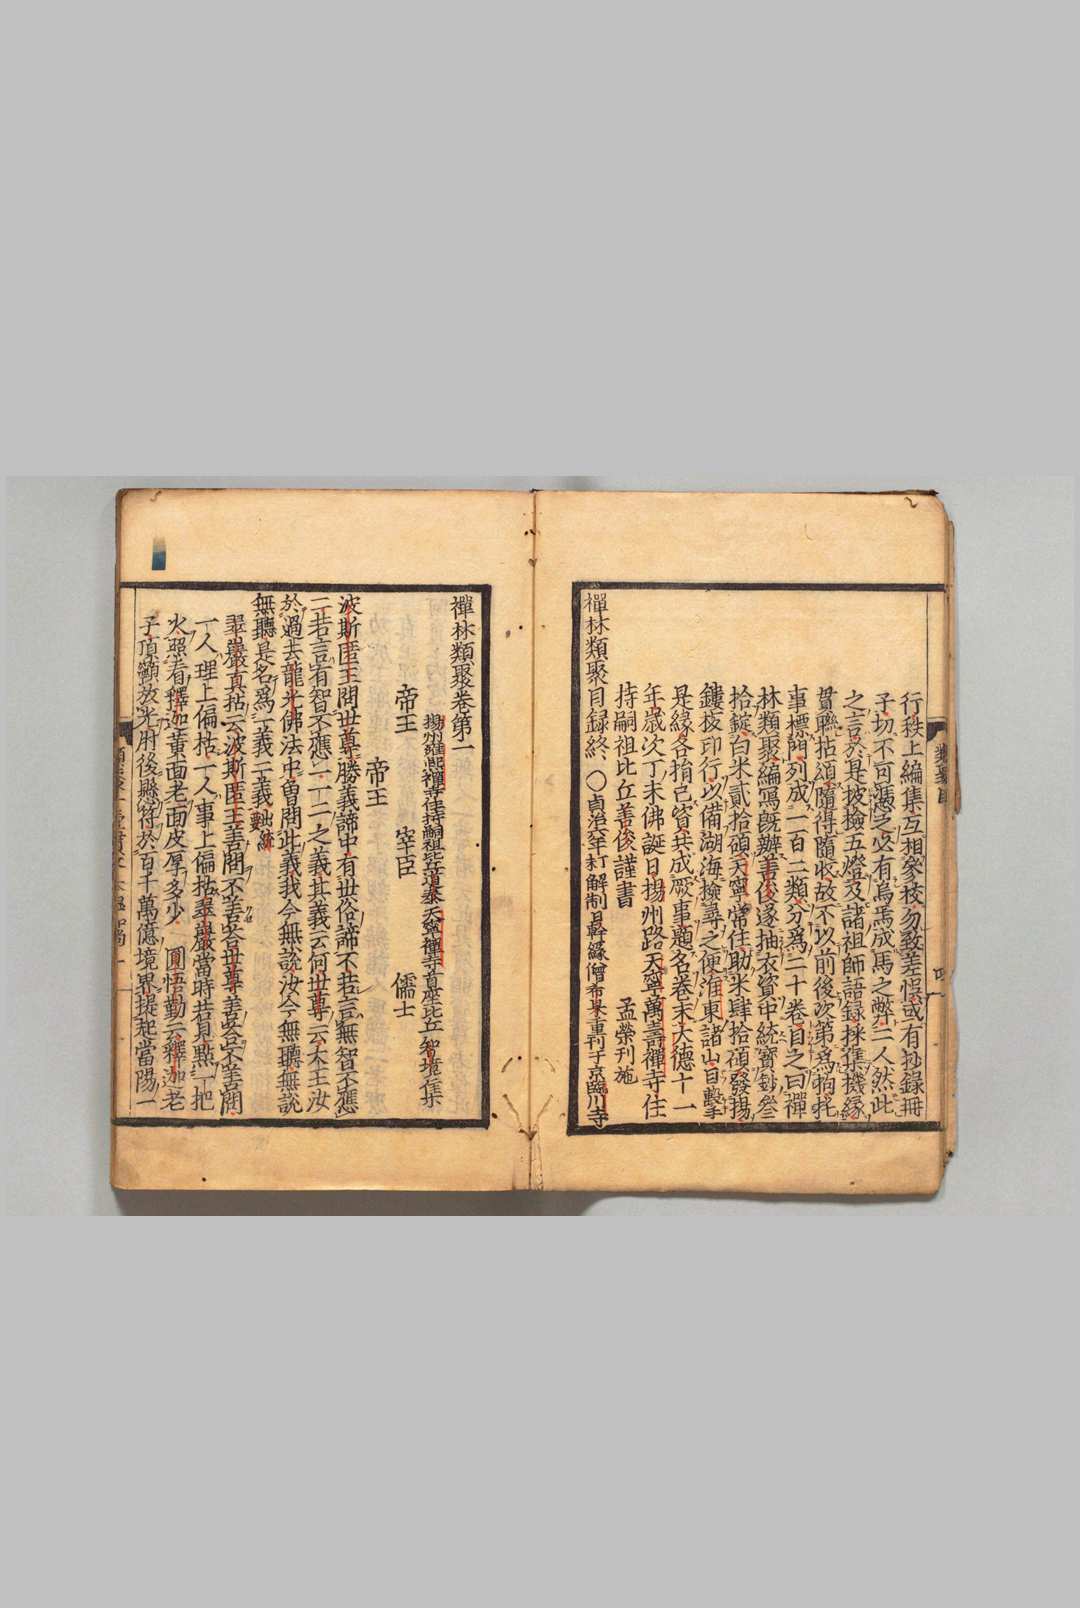 行秩上編集互相參校勿致差悞或有抄錄冊
子切不可憑之必有烏焉成馬之弊二人然此
之言於是披檢五燈及諸祖師語錄採集機緣
貫聯拈頌隨得隨收故不以前後次第爲拘耗
事標門列成一百二類分爲二十卷目之曰禪
林類聚編寫旣辦善俊遂抽衣資中統寶鈔叄
拾錠白米貳拾碩天寧常住助米肆拾碩發揚
鏤板印行以備湖海撿尋之便淮東諸山目擊
是緣各捐己貲共成厥事題名卷末大德十一
年歲次丁未佛誕日揚州路天寧萬壽禪寺住
持嗣祖比丘善俊謹書 孟榮刊施
禪林類聚目錄終 ○貞治六年解制日幹緣僧希杲重刊于京臨川寺
類聚目 四
禪林類聚卷第一
揚州雍熙禪寺住持嗣祖比丘道泰 天寧禪寺首座比丘智境 集
帝王 宰臣 儒士
帝王
波斯匿王問世尊勝義諦中有世俗諦不若言無智不應
二若言有智不應一一二之義其義云何世尊云大王汝
於過去龍光佛法中曾問此義我今無說汝今無聽無說
無聽是名爲一義二義
翠巖眞拈云波斯匿王善問不善答世尊善答不善問
一人理上偏枯一人事上偏枯翠巖當時若見點一把
火照看釋迦黃面老面皮厚多少 圓悟勤云釋迦老
子頂顙放光肘後懸符於百千萬億境界提起當陽一